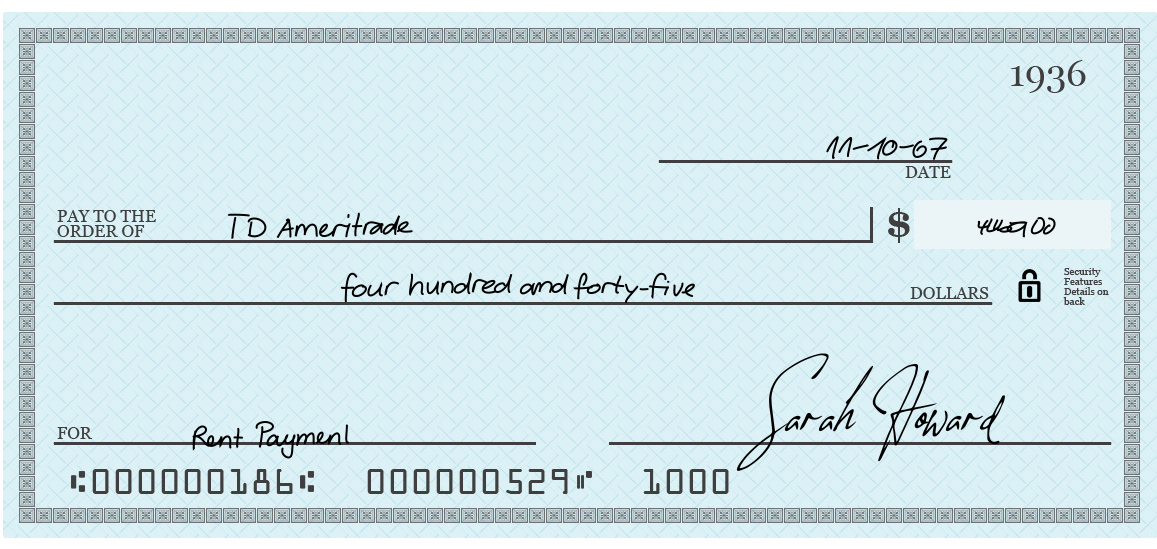 1936
11-10-67
DATE
PAY TO THE
ORDER OF TD Ameritrade $
four hundred and forty-five DOLLARS
Security
Features
Details on
back
FOR Rent Payment Sarah Howard
⑆000000186⑆ 000000529⑈ 1000